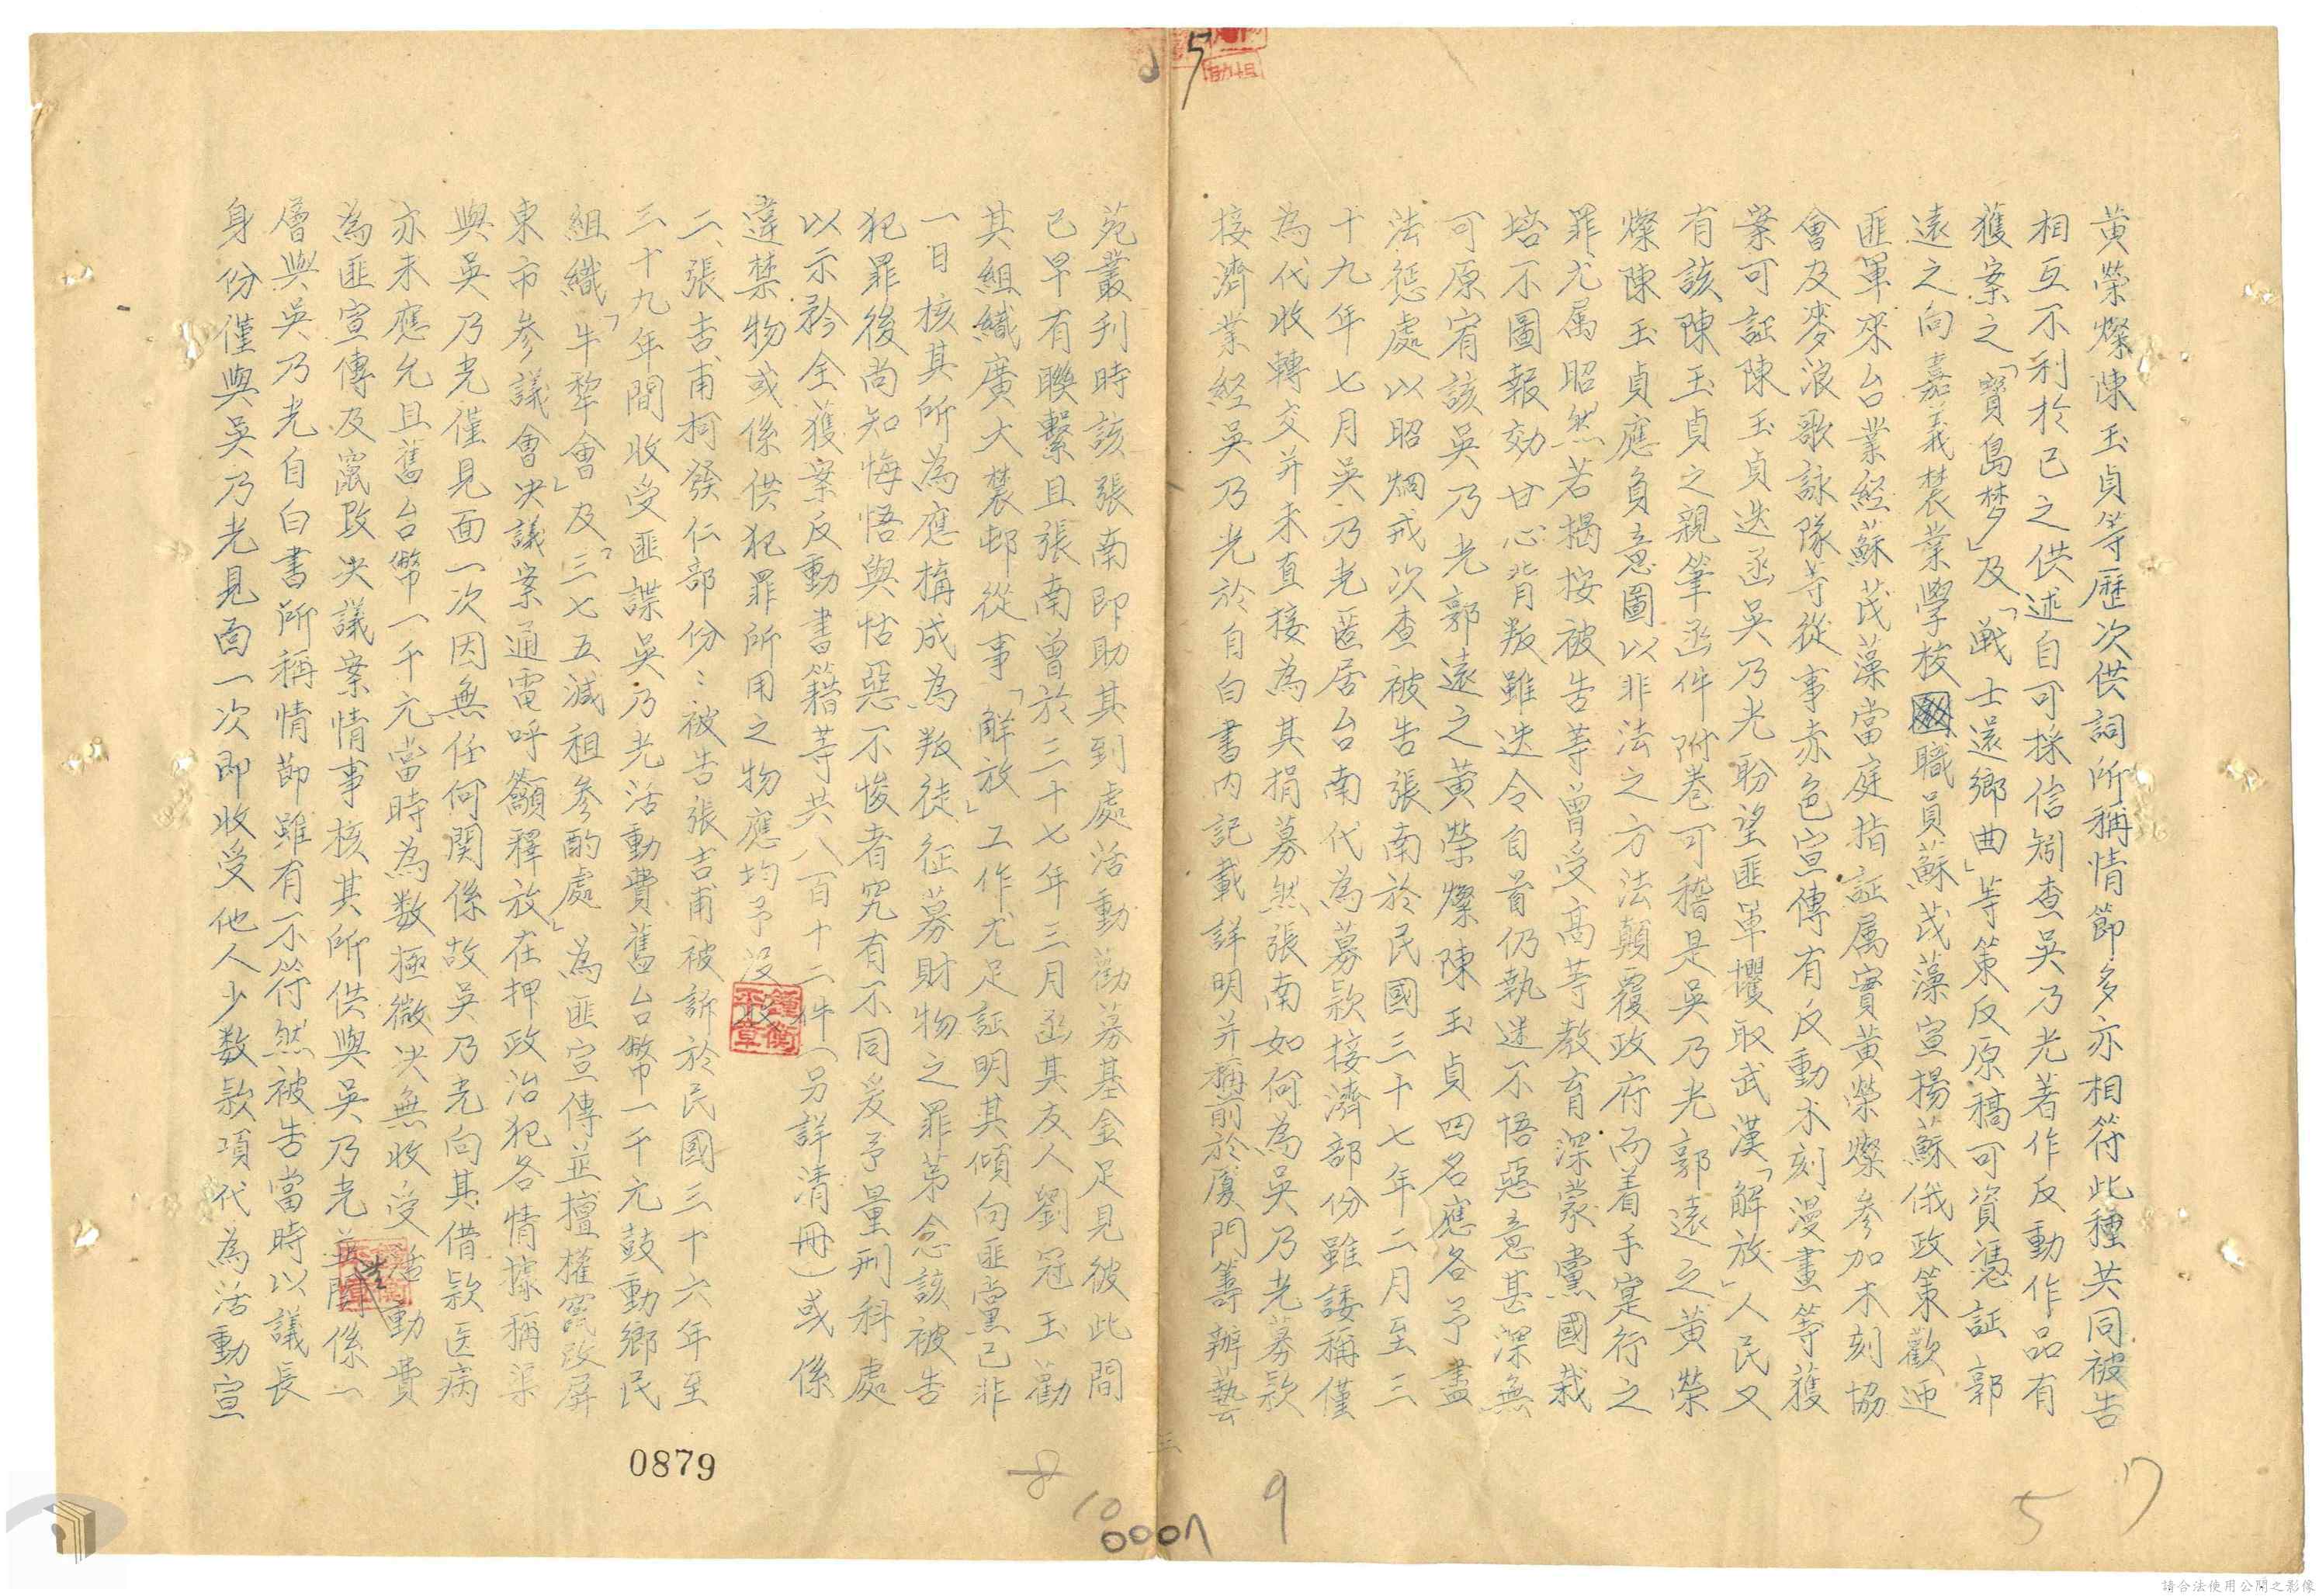 5
黃榮燦陳玉貞等歷次供詞所稱情節多亦相符此種共同被告
相互不利於己之供述自可採信矧查吳乃光著作反動作品有
獲案之「寶島梦」及「戰士還鄉曲」等策反原稿可資憑証郭
遠之向嘉義農業學校職員蘇茂藻宣揚蘇俄政策歡迎
匪軍來台業经蘇茂藻當庭指証属實黃榮燦參加木刻協
會及麥浪歌詠隊等從事赤色宣傳有反動木刻漫畫等獲
案可証陳玉貞迭函吳乃光盼望匪軍攫取武漢「解放」人民又
有該陳玉貞之親筆函件附卷可稽是吳乃光郭遠之黃榮
燦陳玉貞應負意圖以非法之方法顛覆政府而着手寔行之
罪尤属昭然若揭按被告等曾受高等教育深蒙黨國栽
培不圖報効甘心背叛雖迭令自首仍執迷不悟惡意甚深無
可原宥該吳乃光郭遠之黃榮燦陳玉貞四名應各予盡
法惩處以昭烱戒次查被告張南於民國三十七年二月至三
十九年七月吳乃光匿居台南代為募欵接濟部份雖諉稱僅
為代收轉交并未直接為其捐募然張南如何為吳乃光募欵
接濟業经吳乃光於自白書内記載詳明并稱前於厦門籌辦藝
苑叢刊時該張南即助其到處活動勸募基金足見彼此間
已早有聯繫且張南曾於三十七年三月函其友人劉冠玉勸
其組織廣大農邨從事「解放」工作尤足証明其傾向匪黨已非
一日核其所為應構成為叛徒征募財物之罪苐念該被告
犯罪後尚知悔悟與怙惡不悛者究有不同爰予量刑科處
以示矜全獲案反動書籍等共八百十二件(另詳清冊)或係
違禁物或係供犯罪所用之物應均予没收
二、張吉甫祠發仁部份：被告張吉甫被訴於民國三十六年至
三十九年間收受匪諜吳乃光活動費舊台幣一千元鼓動鄉民
組織「牛犂會」及「三七五減租參酌處」為匪宣傳並擅權竄改屏
東市參議會决議案通電呼籲釋放在押政治犯各情據稱渠
與吳乃光僅見面一次因無任何関係故吳乃光向其借欵医病
亦未應允且舊台幣一千元當時為数極微决無收受活動費
為匪宣傳及竄改决議案情事核其所供與吳乃光並関係一
層與吳乃光自白書所稱情節雖有不符然被告當時以議長
身份僅與吳乃光見面一次即收受他人少数欵項代為活動宣
三
0879
8
10
0007
9
5
17
請合法使用公開之影像